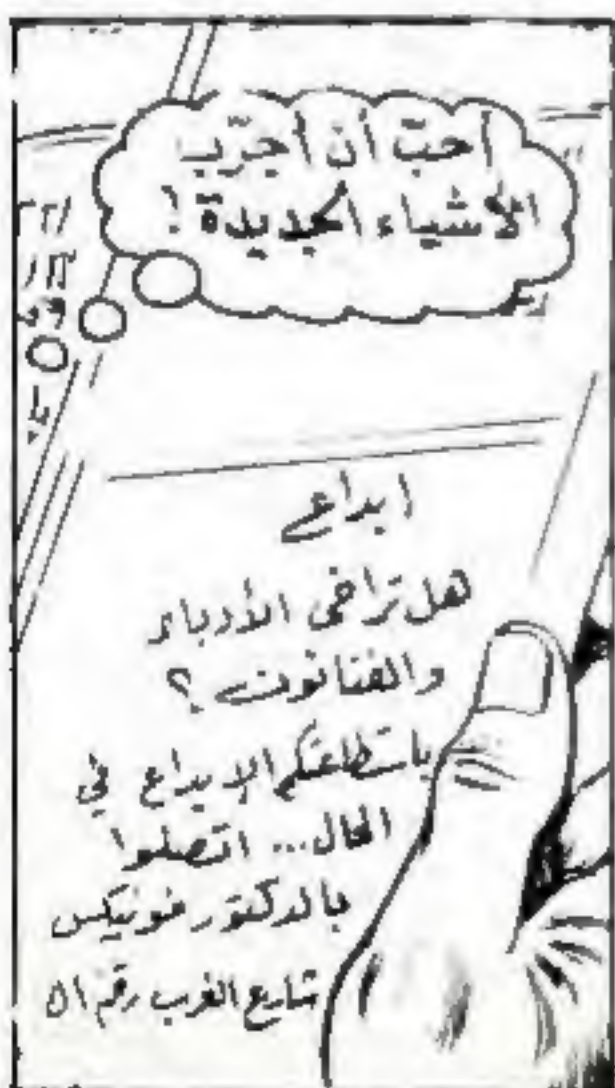 أحبّ أن أجرّب
الأشياء الجديدة!
ابداع
هل تراخى الأدباء
والفنانون؟
باستطاعتكم الإبداع في
الحال... اتصلوا
بالدكتور فونيكس
شارع الغرب رقم ٥١